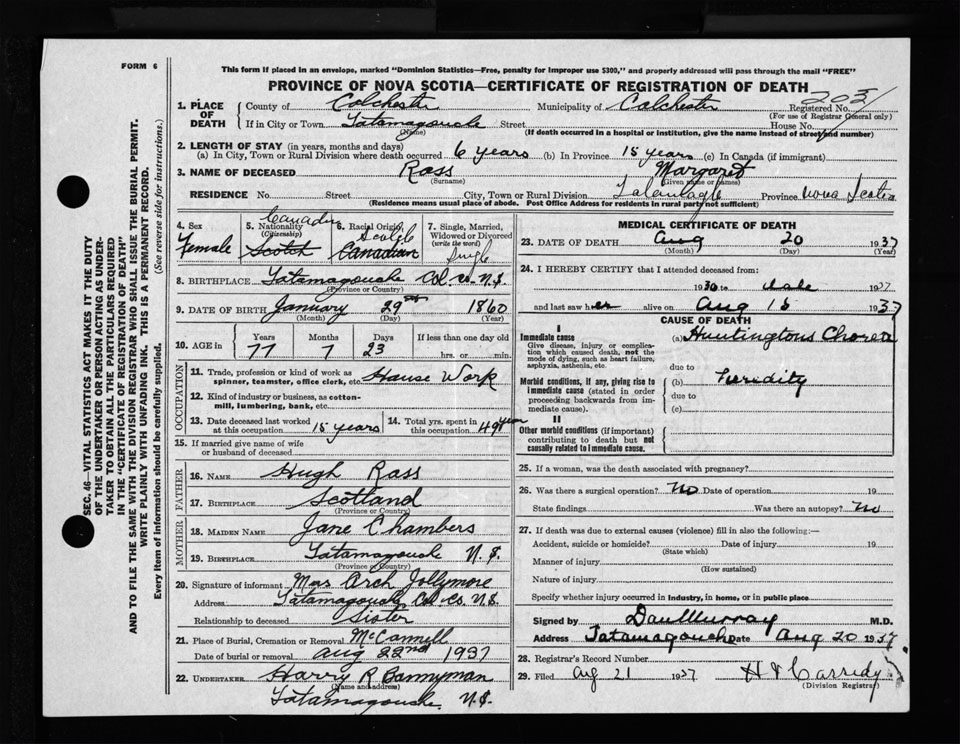 FORM 6
This form if placed in an envelope, marked "Dominion Statistics—Free, penalty for improper use $300," and properly addressed will pass through the mail "FREE"
PROVINCE OF NOVA SCOTIA—CERTIFICATE OF REGISTRATION OF DEATH
1. PLACE OF DEATH
County of Colchester Municipality of Colchester Registered No.
(For use of Registrar General only)
If in City or Town Tatamagouche Street House No.
(Name) (If death occurred in a hospital or institution, give the name instead of street and number)
2. LENGTH OF STAY (in years, months and days)
(a) In City, Town or Rural Division where death occurred 6 years (b) In Province 15 years (c) In Canada (if immigrant)
3. NAME OF DECEASED Ross Margaret
(Surname) (Given name or names)
RESIDENCE No. Street City, Town or Rural Division Province Nova Scotia
(Residence means usual place of abode. Post Office Address for residents in rural parts not sufficient)
4. Sex Female
5. Nationality (Citizenship) Canadian Scotch
6. Racial Origin Scotch Canadian
7. Single, Married, Widowed or Divorced (write the word) Single
8. BIRTHPLACE Tatamagouche Col. Co. N.S.
(Province or Country)
9. DATE OF BIRTH January 29 1860
(Month) (Day) (Year)
10. AGE in Years Months Days If less than one day old
77 7 23 hrs. or min.
OCCUPATION
11. Trade, profession or kind of work as spinner, teamster, office clerk, etc. House Work
12. Kind of industry or business, as cotton-mill, lumbering, bank, etc.
13. Date deceased last worked at this occupation 15 years
14. Total yrs. spent in this occupation 49
15. If married give name of wife or husband of deceased
FATHER
16. NAME Hugh Ross
17. BIRTHPLACE Scotland
(Province or Country)
MOTHER
18. MAIDEN NAME Jane Chambers
19. BIRTHPLACE Tatamagouche N.S.
(Province or Country)
20. Signature of informant Mrs Arch Jollymore
Address Tatamagouche Col. Co. N.S.
Relationship to deceased Sister
21. Place of Burial, Cremation or Removal
Date of burial or removal Aug 22nd 1937
22. UNDERTAKER Harry R Bonnyman
(Name and address)
Tatamagouche N.S.
MEDICAL CERTIFICATE OF DEATH
23. DATE OF DEATH Aug 20 1937
(Month) (Day)
24. I HEREBY CERTIFY that I attended deceased from:
1930 to date 1937
and last saw her alive on Aug 18 1937
CAUSE OF DEATH
I
Immediate cause
Give disease, injury or complication which caused death, not the mode of dying, such as heart failure, asphyxia, asthenia, etc.
(a) Huntingtons Chorea
due to
Morbid conditions, if any, giving rise to immediate cause (stated in order proceeding backwards from immediate cause).
(b) heredity
due to
(c)
II
Other morbid conditions (if important) contributing to death but not causally related to immediate cause.
25. If a woman, was the death associated with pregnancy?
26. Was there a surgical operation? No Date of operation 19
State findings Was there an autopsy? No
27. If death was due to external causes (violence) fill in also the following:—
Accident, suicide or homicide? Date of injury 19
(State which)
Manner of injury
(How sustained)
Nature of injury
Specify whether injury occurred in industry, in home, or in public place
Signed by Dan Murray M.D.
Address Tatamagouche Date Aug 20 1937
28. Registrar's Record Number
29. Filed Aug 21 1937
(Division Registrar)
SEC. 46—VITAL STATISTICS ACT MAKES IT THE DUTY
OF THE UNDERTAKER OR PERSON ACTING AS UNDER-
TAKER TO OBTAIN ALL THE PARTICULARS REQUIRED
IN THE "CERTIFICATE OF REGISTRATION OF DEATH"
AND TO FILE THE SAME WITH THE DIVISION REGISTRAR WHO SHALL ISSUE THE BURIAL PERMIT.
WRITE PLAINLY WITH UNFADING INK. THIS IS A PERMANENT RECORD.
Every item of information should be carefully supplied. (See reverse side for instructions.)